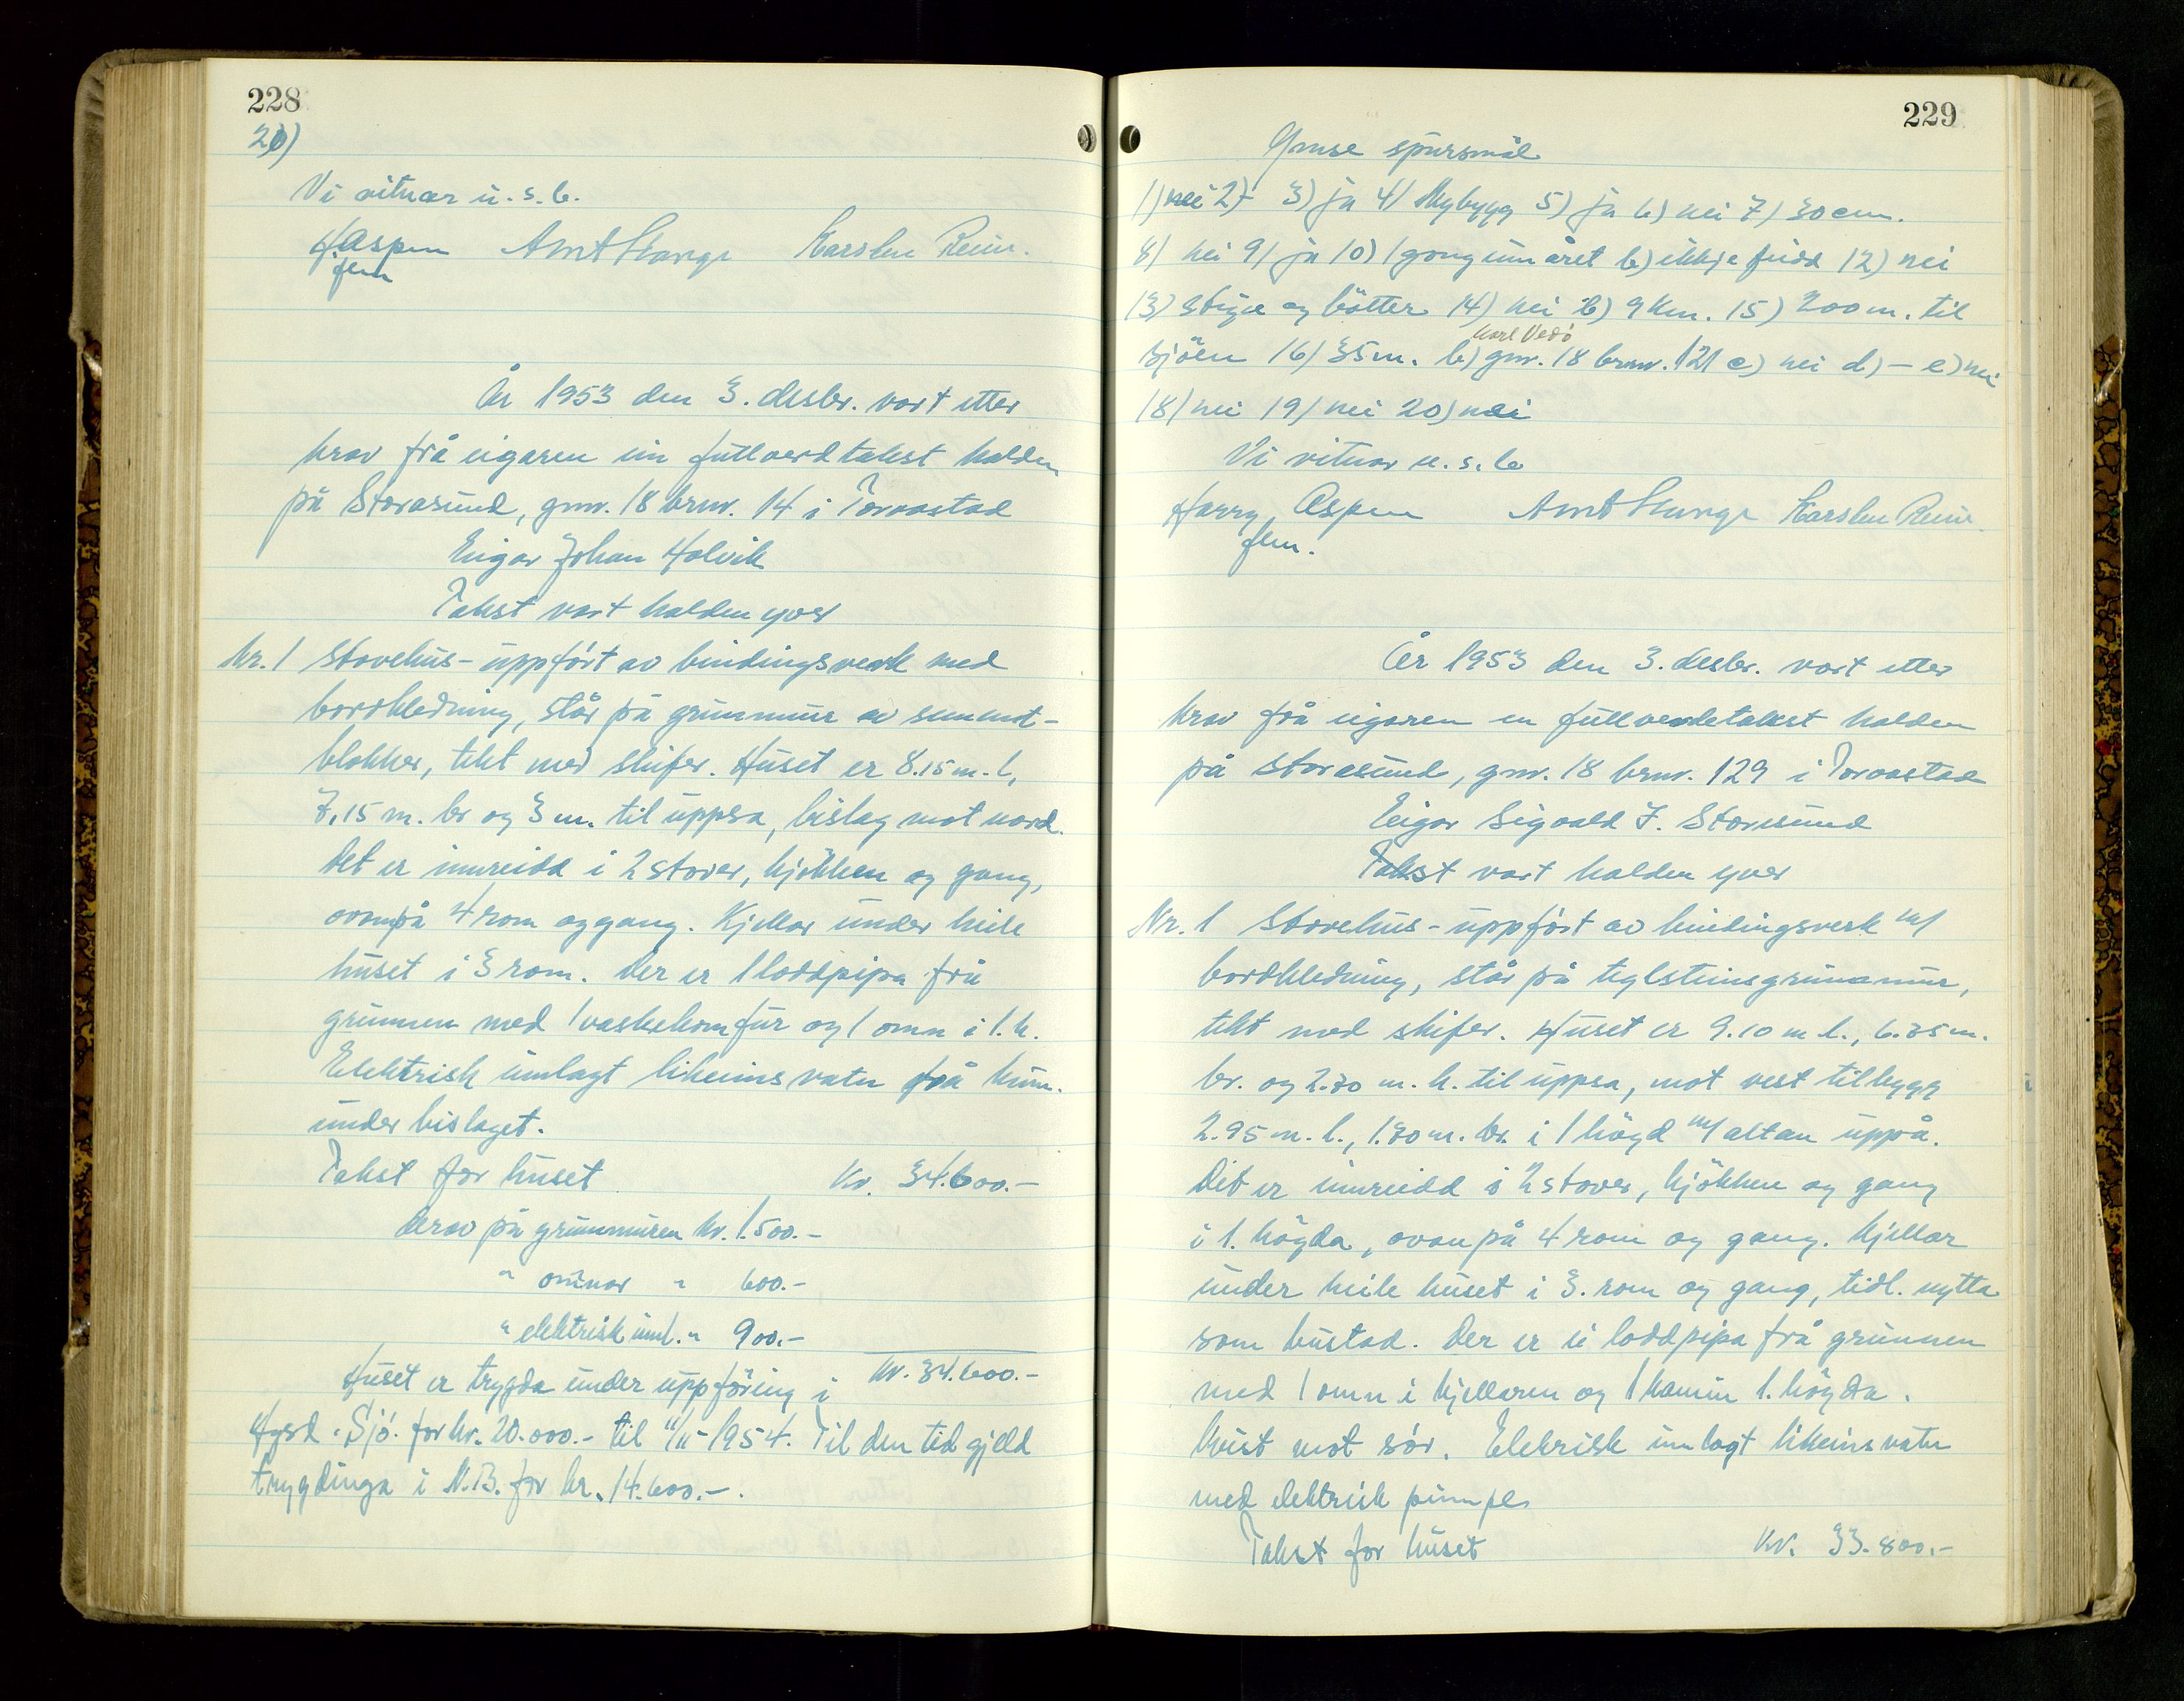 228
20)
Vi vitnar u.s.b.
H. Aspen Arnt Stange Karsten Reiur.
fm
År 1953 den 3. desbr. vart etter
krav frå eigaren ein fullverdtakst halden
på Storasund, gnr. 18 brnr. 14 i Torvastad
Eigar Johan Holvik
Takst vart halden yver
Nr. 1 Stovehus - uppført av bindingsverk med
bordkledning, står på grunnmur av sement-
blokker, tekt med skifer. Huset er 8.15 m. l,
7,15 m. br og 3 m. til uppsa, bislag mot nord.
Det er innreidd i 2 stover, kjökken og gang,
ovanpå 4 rom og gang. Kjellar under heile
huset i 3 rom. Der er 1 loddpipa frå
grunnen med 1 vaskekomfur og 1 omn i 1. h.
Elektrisk innlagt likeins vatn frå kum.
under bislaget.
Takst for huset Kr. 34.600.-
Derav på grunnmuren kr. 1.500.-
" omnar " 600.-
" elektrisk innl. " 900.-
Kr. 34.600.-
Huset er trygda under uppföring i
Hgsd. Sjö. for kr. 20.000.- til 11/11-1954. Til den tid gjeld
trygdinga i N.B. for kr. 14.600.-.
229
Ymse spursmål
1) nei 2) - 3) ja 4) Nybygg 5) ja 6) nei 7) 30 cm.
8) nei 9) ja 10) 1 gong um året b) ikkje fidd 12) nei
13) Stige og bötter 14) nei b) 9 km. 15) 200 m. til
Karl Vedö
sjöen 16) 35 m. b) gnr. 18 brnr. 121 c) nei d) - e) nei
18) nei 19) nei 20) nei
Vi vitnar u.s.b
Harry Aspen Arnt Stange Karsten Reiur.
fm.
År 1953 den 3. desbr. vart etter
krav frå eigaren en fullverdetakst halden
på Storasund, gnr. 18 brnr. 129 i Torvastad
Eigar Sigvald J. Storesund
Takst vart halden yver
Nr. 1 Stovehus - uppført av bindingsverk m/
bordkledning, står på teglsteinsgrunnmur,
tekt med skifer. Huset er 9.10 m l., 6.35 m.
br. og 2.70 m. h. til uppsa, mot vest tilbygg
2.95 m. l., 1.70 m. br. i 1 högd m/ altan uppå.
Det er innreidd i 2 stover, kjökken og gang
i 1. högda, ovanpå 4 rom og gang. Kjellar
under heile huset i 3. rom og gang, tidl. nytta
som bustad. Der er ei loddpipa frå grunnen
med 1 omn i kjellaren og 1 kamin 1. högda.
Kvist mot sör. Elekrisk innlagt likeins vatn
med elektrisk pumpe.
Takst for huset Kr. 33.800.-